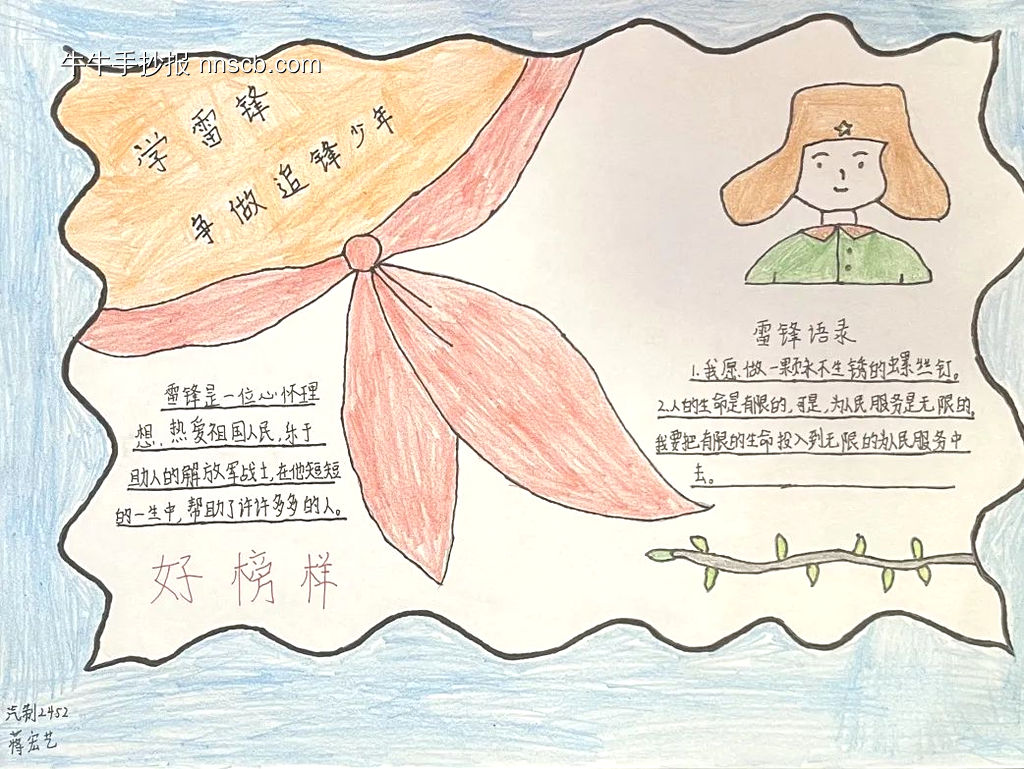 牛牛手抄报 nnscb.com
学雷锋
争做追锋少年
雷锋是一位心怀理
想,热爱祖国人民,乐于
助人的解放军战士,在他短短
的一生中,帮助了许许多多的人。
好榜样
雷锋语录
1.我愿做一颗永不生锈的螺丝钉。
2.人的生命是有限的,可是,为人民服务是无限的,
我要把有限的生命投入到无限的为人民服务中
去。
汽制2452
蒋宏艺